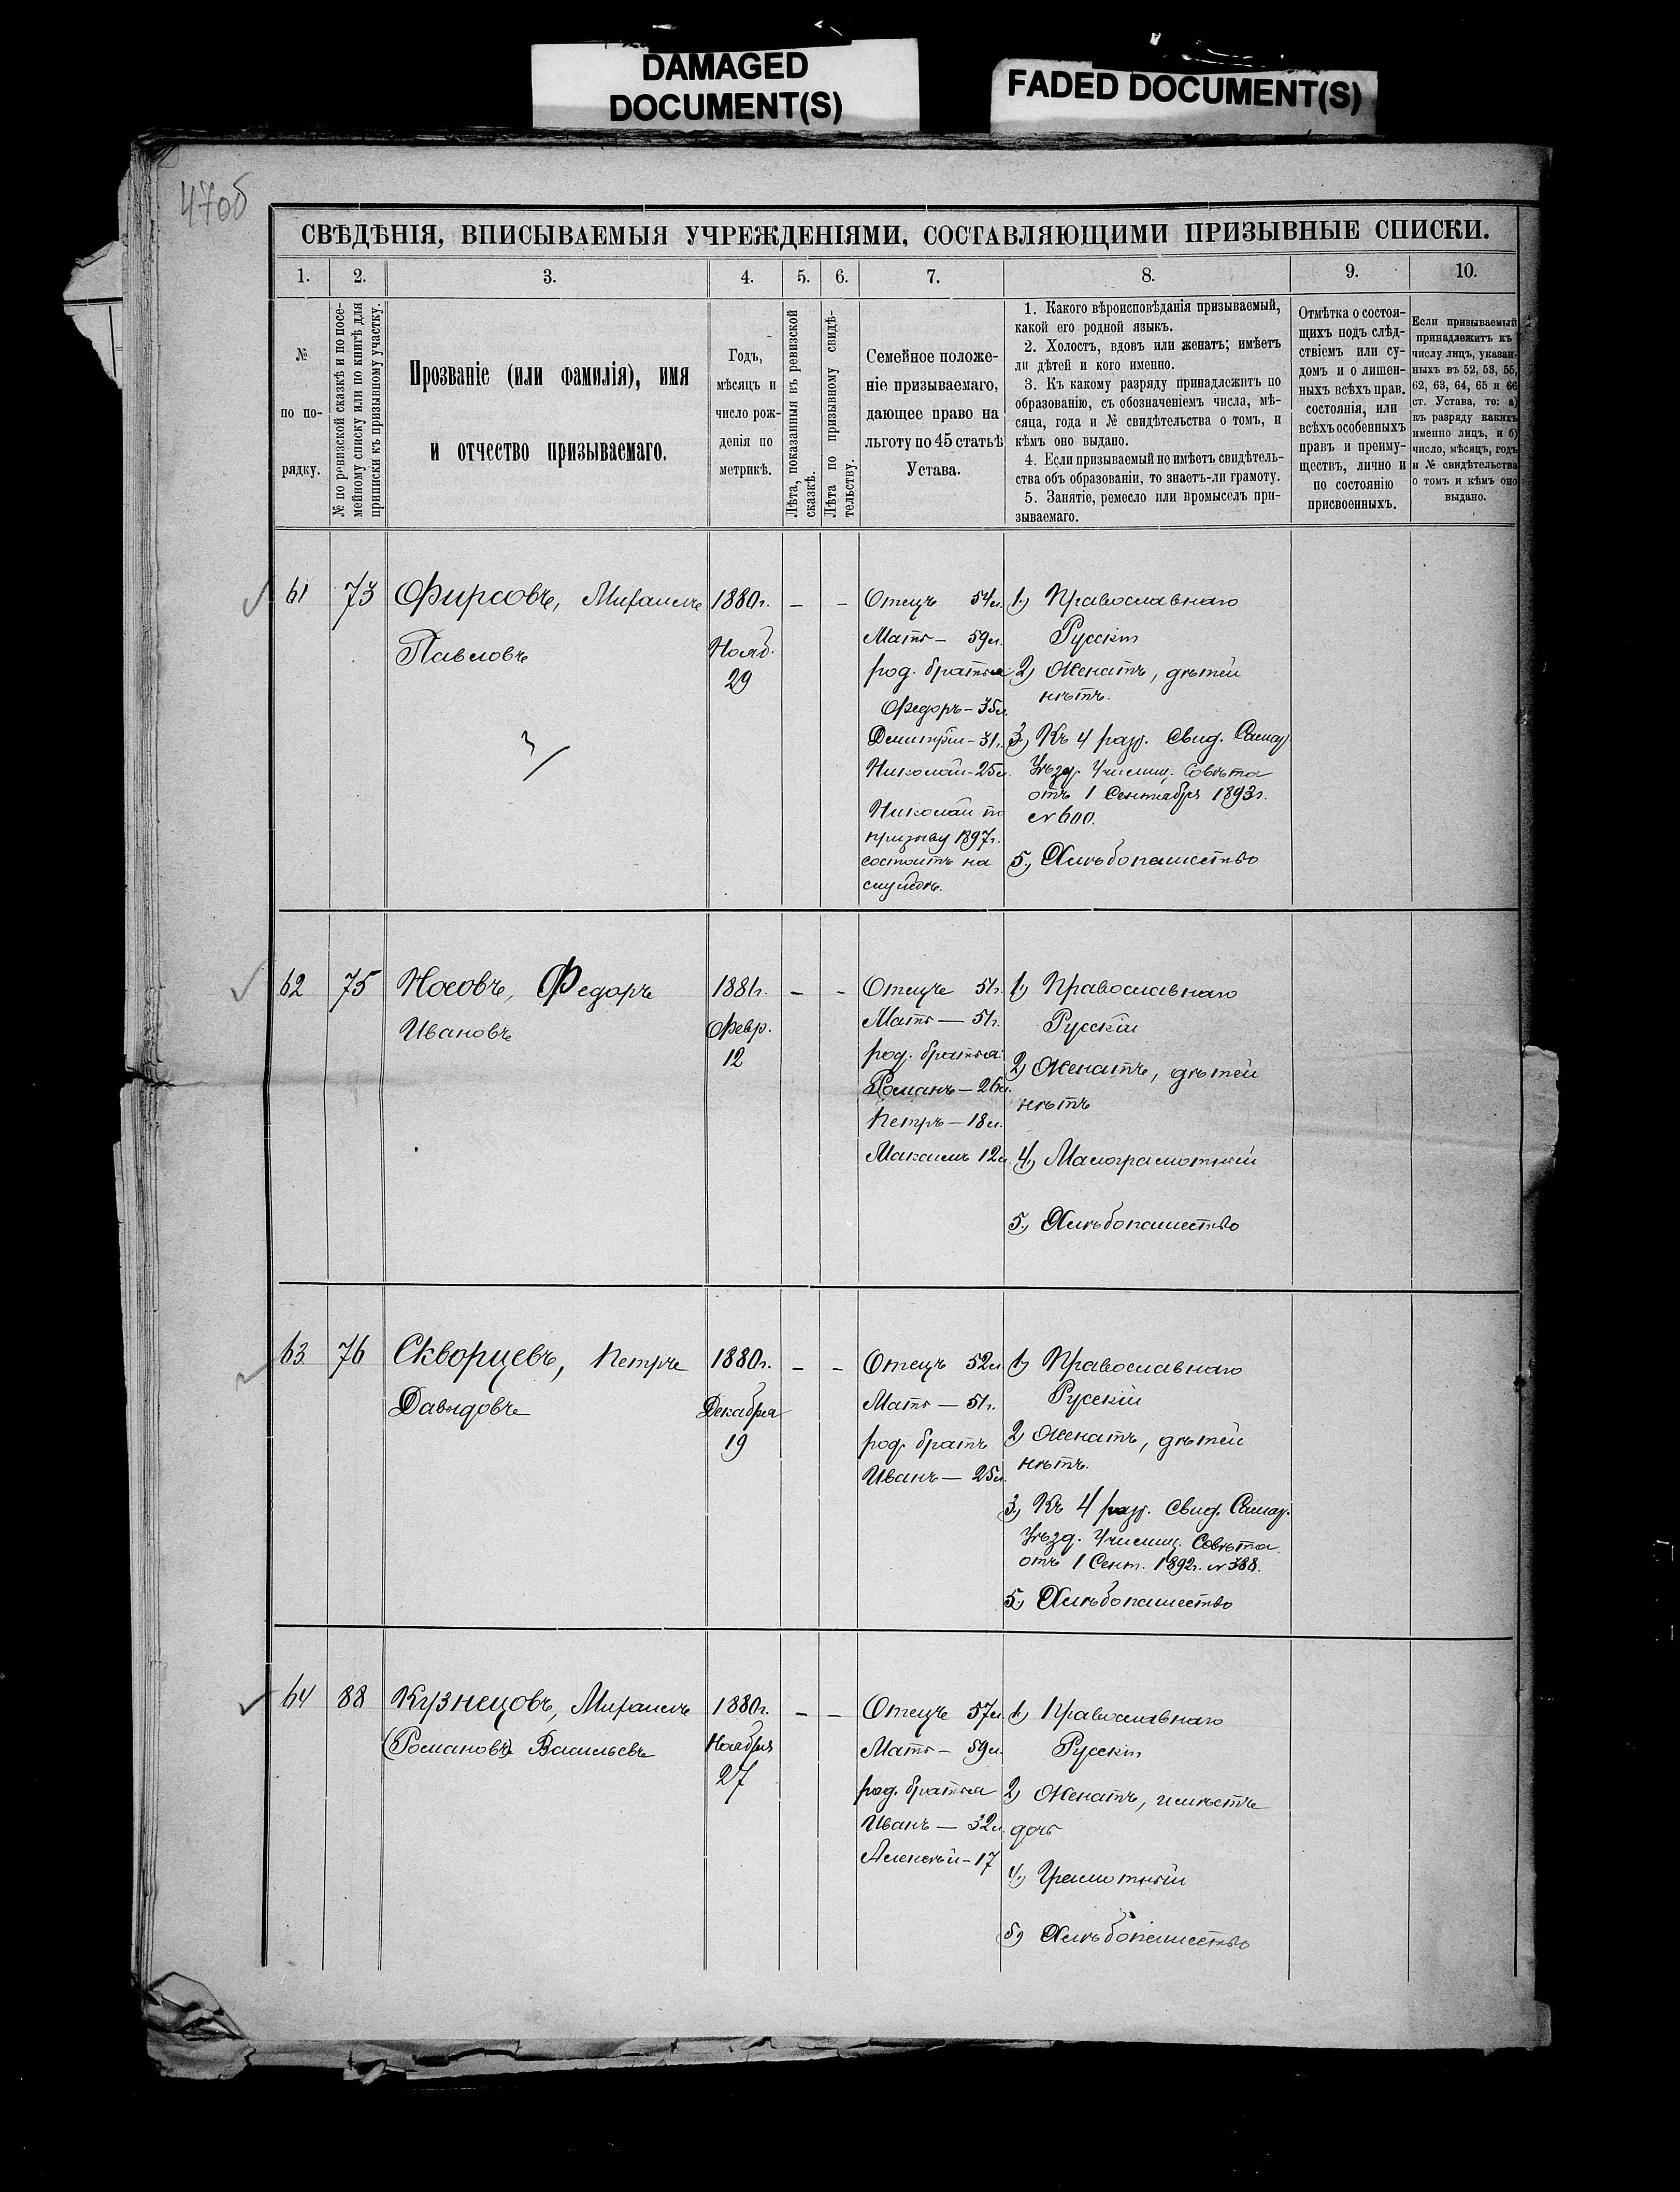 DAMAGED
DOCUMENT(S)
FADED DOCUMENT(S)
47об
СВѢДѢНІЯ, ВПИСЫВАЕМЫЯ УЧРЕЖДЕНІЯМИ, СОСТАВЛЯЮЩИМИ ПРИЗЫВНЫЕ СПИСКИ.
1. 2. 3. 4. 5. 6. 7. 8. 9. 10.
№
по по-
рядку.
№ по ревизской сказкѣ и по посе-
мейному списку или по книгѣ для
приписки къ призывному участку.
Прозваніе (или фамилія), имя
и отчество призываемаго.
Годъ,
мѣсяцъ и
число рож-
денія по
метрикѣ.
Лѣта, показанныя въ ревизской
сказкѣ.
Лѣта по призывному свидѣ-
тельству.
Семейное положе-
ніе призываемаго,
дающее право на
льготу по 45 статьѣ
Устава.
1. Какого вѣроисповѣданія призываемый,
какой его родной языкъ.
2. Холостъ, вдовъ или женатъ; имѣетъ
ли дѣтей и кого именно.
3. Къ какому разряду принадлежитъ по
образованію, съ обозначеніемъ числа, мѣ-
сяца, года и № свидѣтельства о томъ, и
кѣмъ оно выдано.
4. Если призываемый не имѣетъ свидѣтель-
ства объ образованіи, то знаетъ-ли грамоту.
5. Занятіе, ремесло или промыселъ при-
зываемаго.
Отмѣтка о состоя-
щихъ подъ слѣд-
ствіемъ или су-
домъ и о лишен-
ныхъ всѣхъ прав.
состоянія, или
всѣхъ особенныхъ
правъ и преиму-
ществъ, лично и
по состоянію
присвоенныхъ.
Если призываемый
принадлежитъ къ
числу лицъ, указан-
ныхъ въ 52, 53, 55,
62, 63, 64, 65 и 66
ст. Устава, то: а)
къ разряду какихъ
именно лицъ, и б)
число, мѣсяцъ, годъ
и № свидѣтельства
о томъ и кѣмъ оно
выдано.
61 73 Фирсовъ, Михаилъ
Павловъ
1880г.
Нояб.
29
– –
Отецъ 54л.
Мать – 59л.
род. братья
Федоръ – 35л.
Димитрій – 31г.
Николай – 25л.
Николай по
призыву 1897г.
состоитъ на
службѣ.
1) Православнаго
Русскій
2) Женатъ, дѣтей
нѣтъ.
3) Къ 4 разр. Свид. Самар.
Уѣзд. Училищ. Совѣта
отъ 1 Сентября 1893г.
№ 600.
5) Хлѣбопашество
62 75 Носовъ, Федоръ
Ивановъ
1881г.
Февр.
12
– –
Отецъ 51г.
Мать – 51г.
род. братья:
Романъ – 26л.
Петръ – 18л.
Максимъ 12л.
1) Православнаго
Русскій
2) Женатъ, дѣтей
нѣтъ
4) Малограмотный
5) Хлѣбопашество
63 76 Скворцевъ, Петръ
Давыдовъ
1880г.
Декабря
19
– –
Отецъ 52л
Мать – 51г.
род. братъ
Иванъ – 25л.
1) Православнаго
Русскій
2) Женатъ, дѣтей
нѣтъ.
3) Къ 4 разр. Свид. Самар.
Уѣзд. Училищ. Совѣта
отъ 1 Сент. 1892г. № 388.
5) Хлѣбопашество
64 88 Кузнецовъ, Михаилъ
(Романовъ) Васильевъ
1880г.
Ноября
27
– –
Отецъ 57л
Мать – 59л.
род. братья
Иванъ – 32л.
Алексѣй – 17
1) Православнаго
Русскій
2) Женатъ, имѣетъ
дочь
4) Грамотный
5) Хлѣбопашество